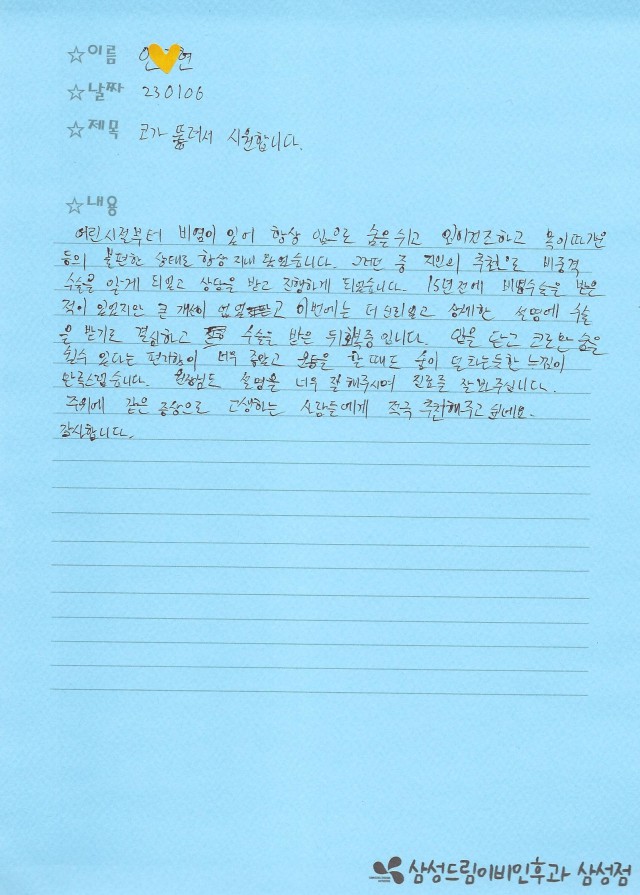 ☆이름 안 현
☆날짜 230106
☆제목 코가 뚫려서 시원합니다.
☆내용
어린시절부터 비염이 있어 항상 입으로 숨을 쉬고 입이건조하고 목이따가운
등의 불편한 상태로 항상 지내 왔었습니다. 그러던 중 지인의 추천으로 비중격
수술을 알게 되었고 상담을 받고 진행하게 되었습니다. 15년전에 비염수술을 받은
적이 있었지만 큰 개선이 없었고 이번에는 더 상세한 설명에 수술
을 받기로 결심하고 수술을 받은 뒤 회복중입니다. 입을 닫고 코로만 숨을
쉴수 있다는 편리함이 너무 좋았고 운동을 할때도 숨이 덜 차는듯한 느낌이
만족스럽습니다. 원장님도 설명을 너무 잘 해주시며 진료를 잘 봐주십니다.
주위에 같은 증상으로 고생하는 사람들에게 적극 추천해주고 싶네요.
감사합니다.
삼성드림이비인후과 삼성점